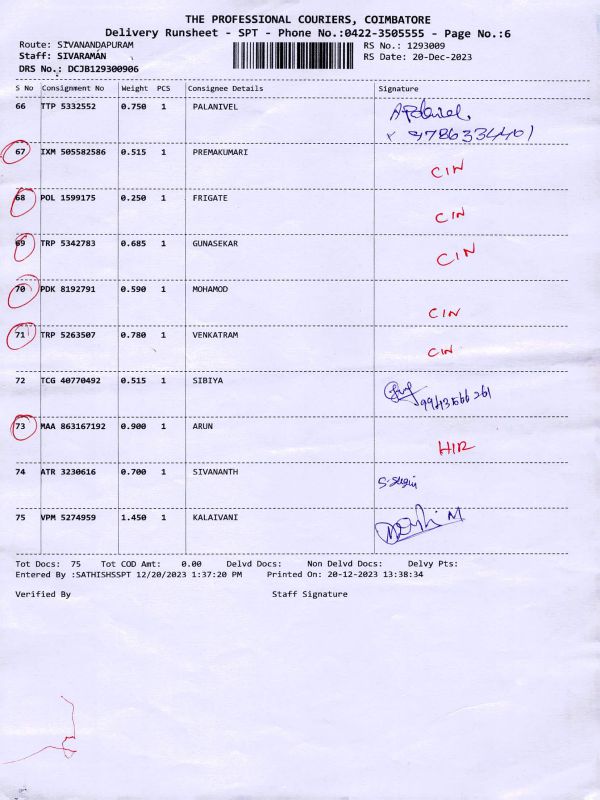 THE PROFESSIONAL COURIERS, COIMBATORE
Delivery Runsheet - SPT - Phone No.:0422-3505555 - Page No.:6
Route: SIVANANDAPURAM RS No.: 1293009
Staff: SIVARAMAN RS Date: 20-Dec-2023
DRS No.: DCJB129300906
S No Consignment No Weight PCS Consignee Details Signature
66 TTP 5332552 0.750 1 PALANIVEL
9786334401
67 IXM 505582586 0.515 1 PREMAKUMARI CIN
68 POL 1599175 0.250 1 FRIGATE CIN
69 TRP 5342783 0.685 1 GUNASEKAR CIN
70 PDK 8192791 0.590 1 MOHAMOD CIN
71 TRP 5263507 0.780 1 VENKATRAM CIN
72 TCG 40770492 0.515 1 SIBIYA
73 MAA 863167192 0.900 1 ARUN HIR
74 ATR 3230616 0.700 1 SIVANANTH
75 VPM 5274959 1.450 1 KALAIVANI
Tot Docs: 75 Tot COD Amt: 0.00 Delvd Docs: Non Delvd Docs: Delvy Pts:
Entered By :SATHISHSSPT 12/20/2023 1:37:20 PM Printed On: 20-12-2023 13:38:34
Verified By Staff Signature